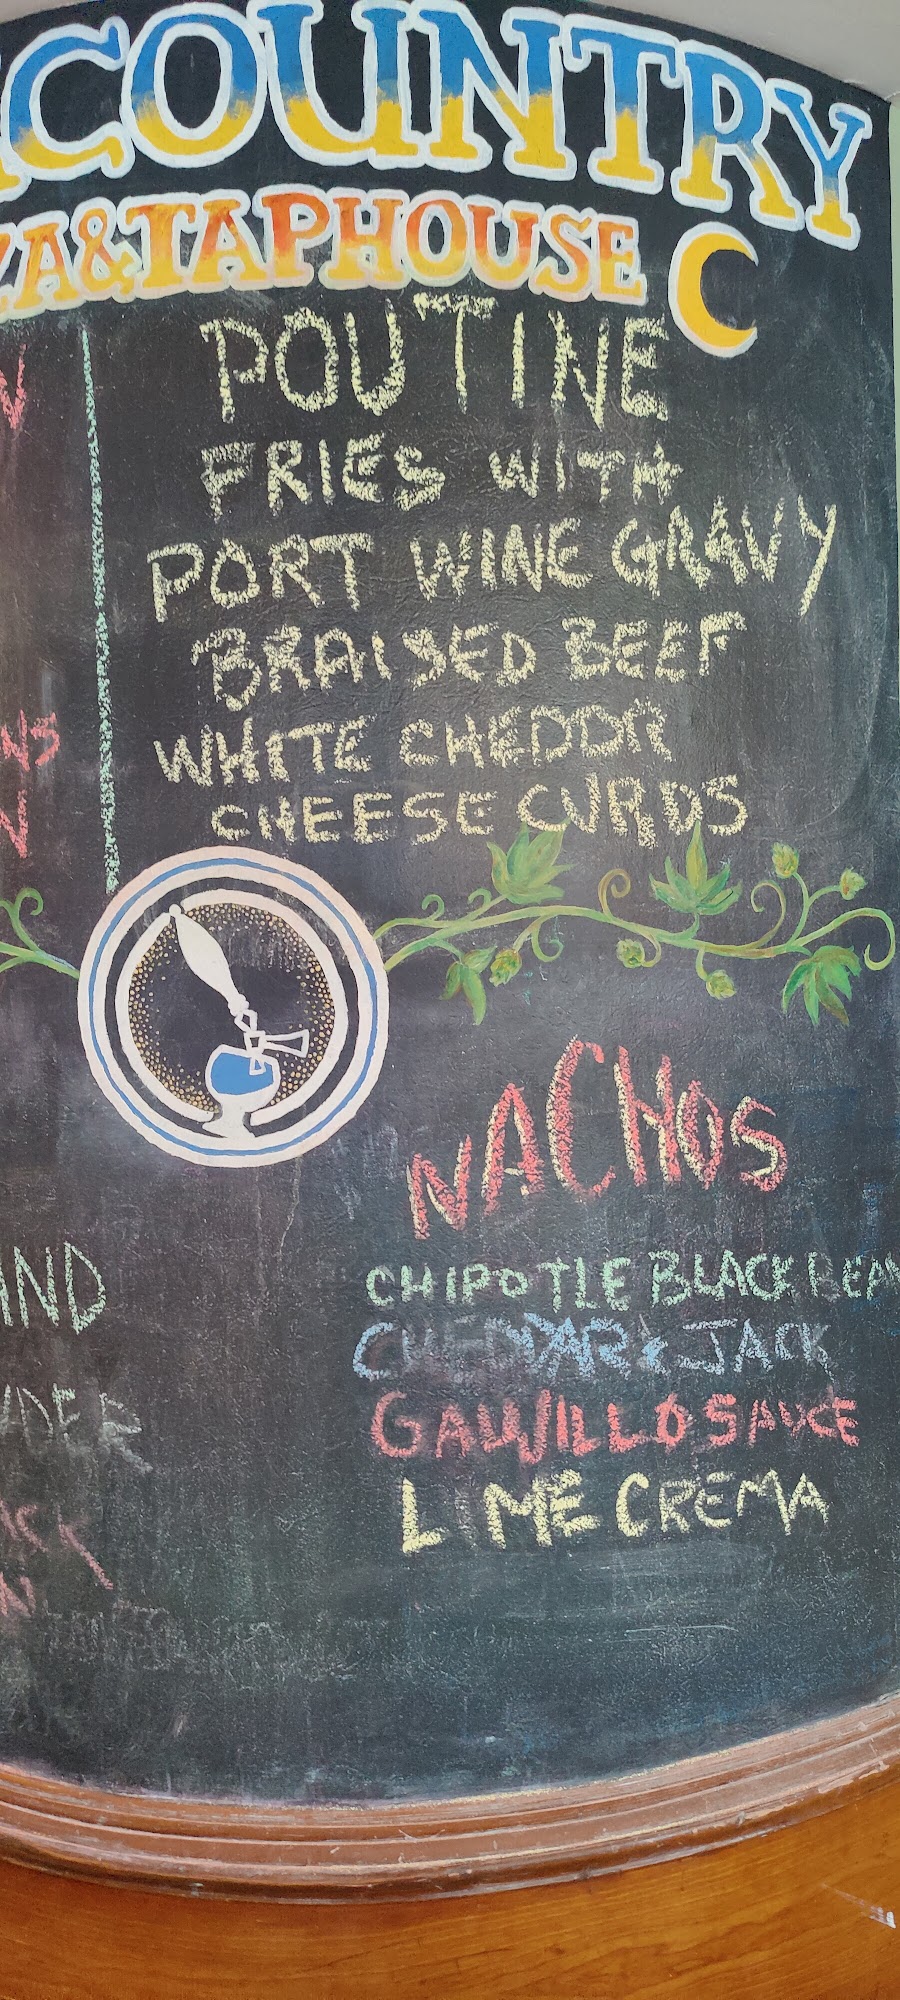 COUNTRY
ZA&TAPHOUSE
POUTINE
FRIES WITH
PORT WINE GRAVY
BRAISED BEEF
WHITE CHEDDR
CHEESE CURDS
NACHOS
CHIPOTLE BLACK BEAN
CHEDDAR & JACK
GAWILLO SAUCE
LIME CREMA
AND